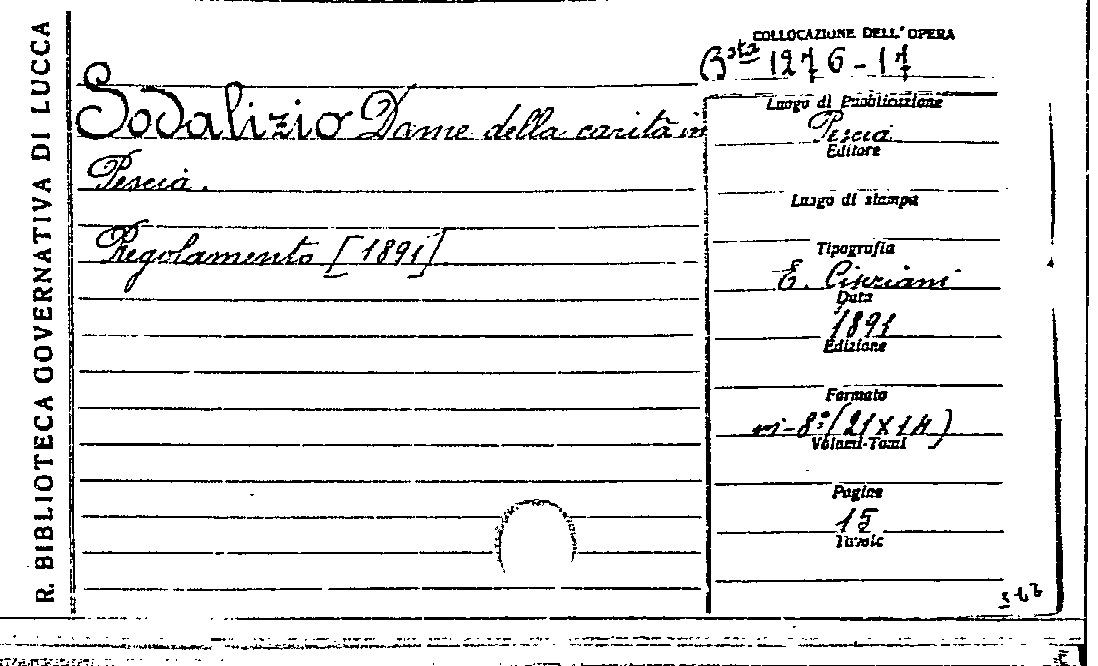 R. BIBLIOTECA GOVERNATIVA DI LUCCA
COLLOCAZIONE DELL'OPERA
Bsta 1276-17
Sodalizio Dame della carità in
Pescia.
Regolamento [1891]
Luogo di Pubblicazione
Pescia
Editore
Luogo di stampa
Tipografia
E. Cipriani
Data
1891
Edizione
Formato
in-8º (21 X 14)
Volumi-Tomi
Pagine
15
Tavole